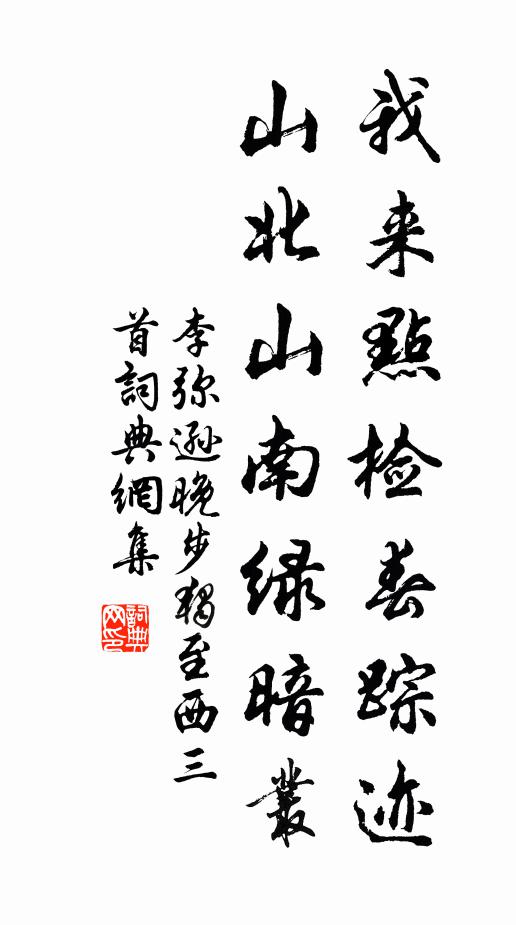 我来點检春踪迹
山北山南绿暗叢
李弥逊晚步独至西三
首詞典網集
詞典网印